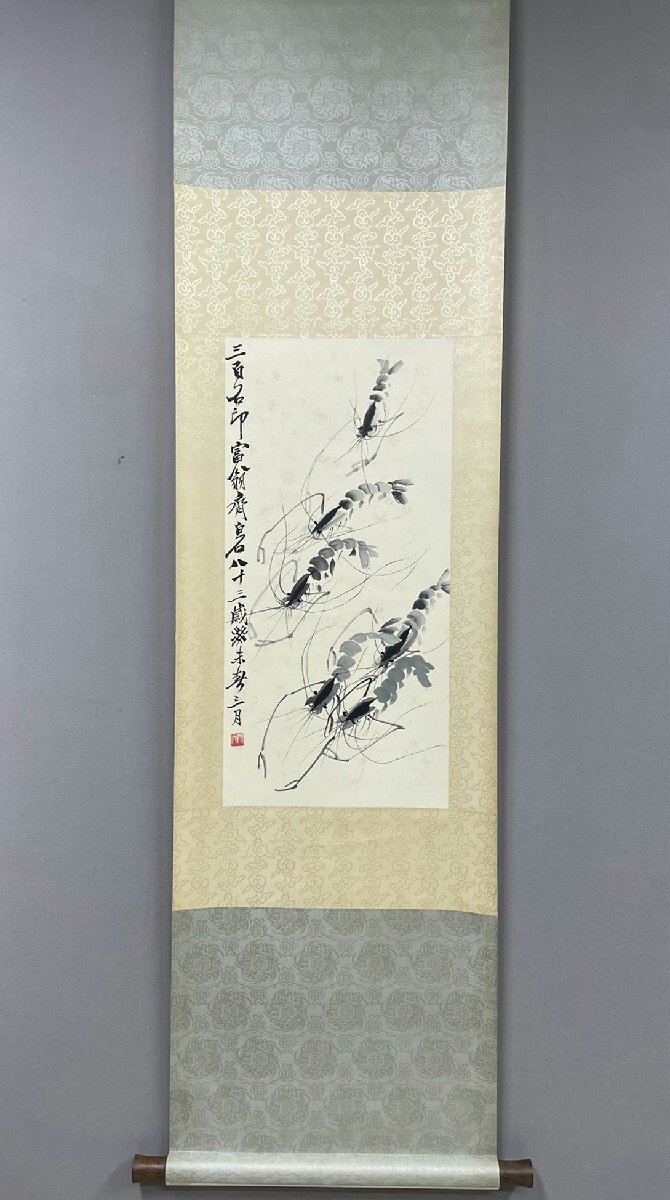 三百石印富翁齊白石八十三歲癸未春三月